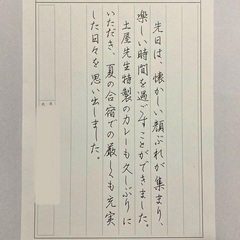 先日は、懐かしい顔ぶれが集まり、
楽しい時間を過ごすことができました。
土屋先生特製のカレーも久しぶりに
いただき、夏の合宿での厳しくも充実
した日々を思い出しました。